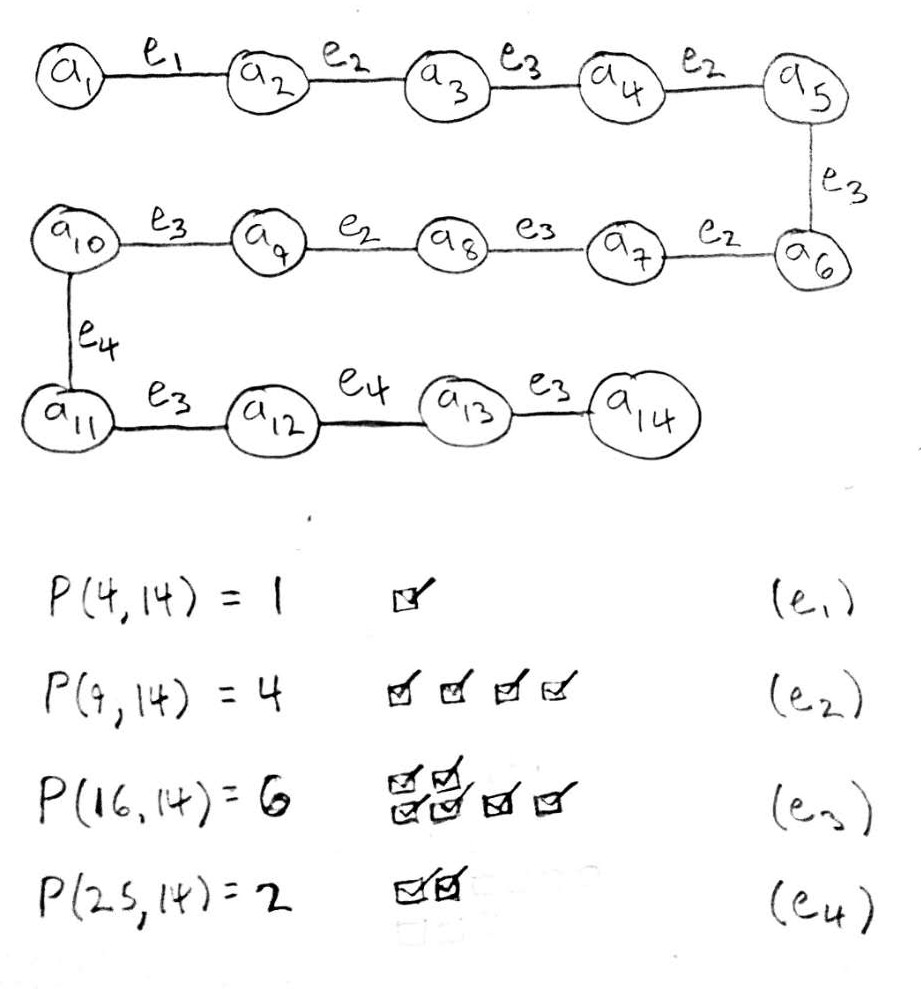 a₁ e₁ a₂ e₂ a₃ e₃ a₄ e₂ a₅
e₃
a₁₀ e₃ a₉ e₂ a₈ e₃ a₇ e₂ a₆
e₄
a₁₁ e₃ a₁₂ e₄ a₁₃ e₃ a₁₄
P(4,14) = 1 ☑ (e₁)
P(9,14) = 4 ☑ ☑ ☑ ☑ (e₂)
P(16,14) = 6 ☑ ☑ ☑ ☑ ☑ ☑ (e₃)
P(25,14) = 2 ☑ ☑ (e₄)